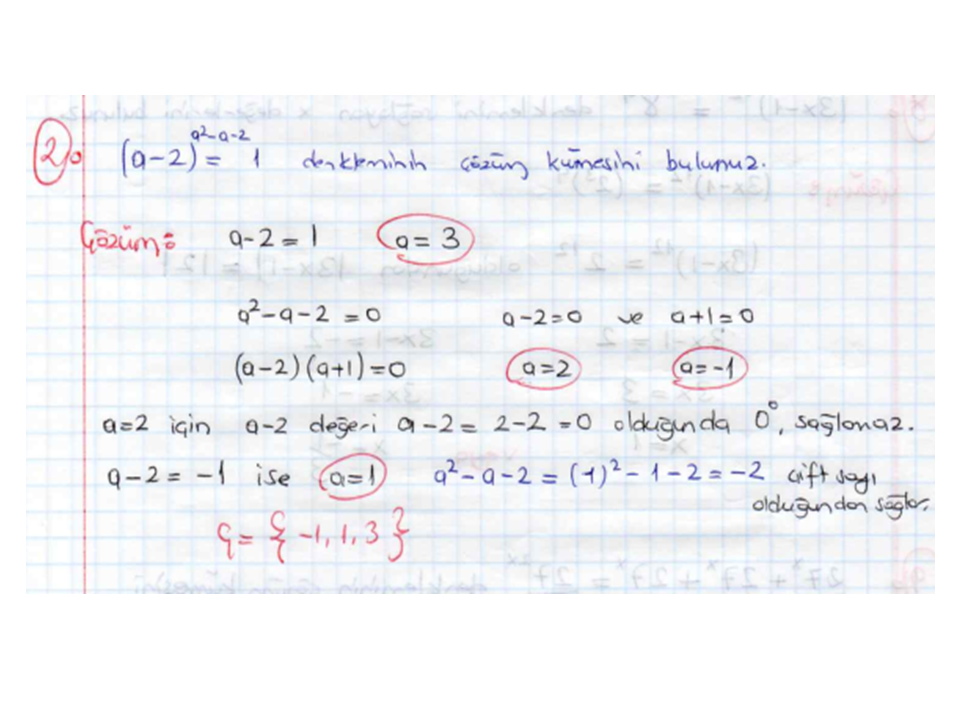 2) (a-2)^(a²-a-2) = 1 denkleminin çözüm kümesini bulunuz.
Çözüm: a-2 = 1 a = 3
a²-a-2 = 0 a-2=0 ve a+1=0
(a-2)(a+1)=0 a=2 a=-1
a=2 için a-2 değeri a-2 = 2-2 = 0 olduğunda 0⁰, sağlamaz.
a-2 = -1 ise a=1 a²-a-2 = (-1)²-1-2 = -2 çift sayı
olduğundan sağlar.
Ç = { -1, 1, 3 }